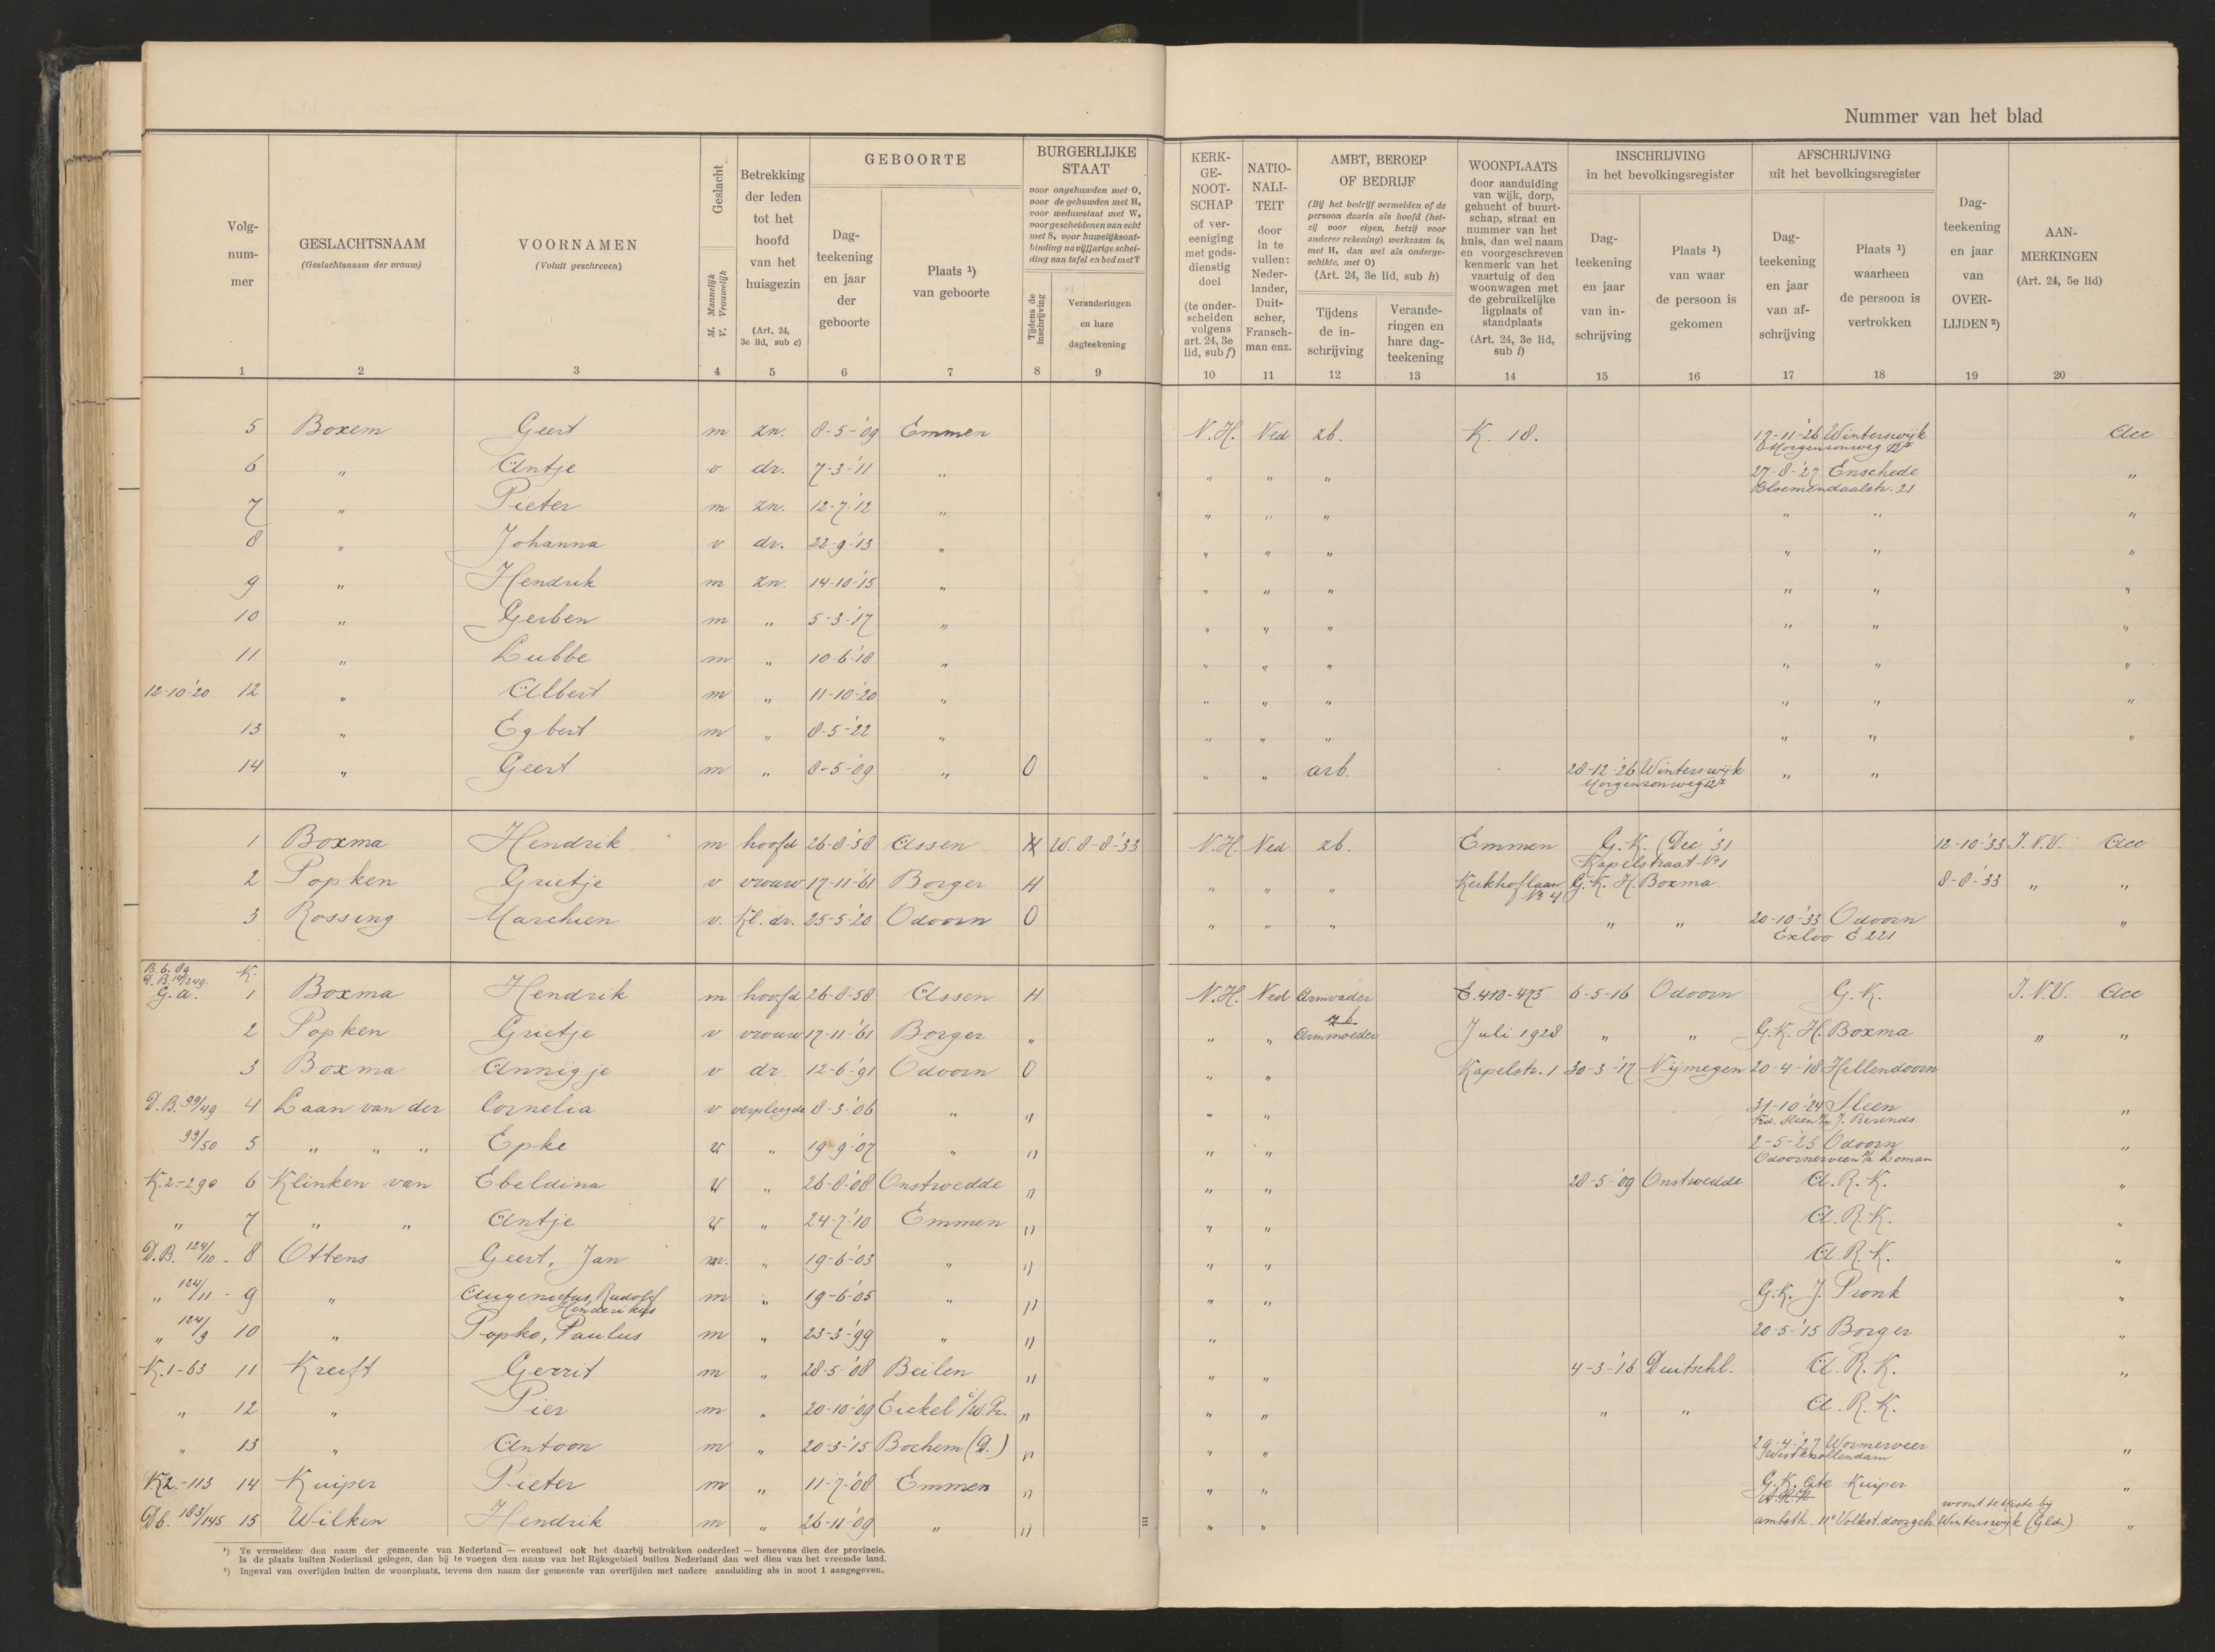 Nummer van het blad
Volg-
num-
mer
GESLACHTSNAAM
(Geslachtsnaam der vrouw)
VOORNAMEN
(Voluit geschreven)
Geslacht
M. Mannelijk
V. Vrouwelijk
Betrekking
der leden
tot het
hoofd
van het
huisgezin
(Art. 24,
3e lid, sub c)
GEBOORTE
Dag-
teekening
en jaar
der
geboorte
Plaats ¹)
van geboorte
BURGERLIJKE
STAAT
voor ongehuwden met O,
voor de gehuwden met H,
voor weduwstaat met W,
voor gescheidenen van echt
met S, voor huwelijksont-
binding na vijfjarige schei-
ding van tafel en bed met T
Tijdens de
inschrijving
Veranderingen
en hare
dagteekening
KERK-
GE-
NOOT-
SCHAP
of ver-
eeniging
met gods-
dienstig
doel
(te onder-
scheiden
volgens
art. 24, 3e
lid, sub f)
NATIO-
NALI-
TEIT
door
in te
vullen:
Neder-
lander,
Duit-
scher,
Fransch-
man enz.
AMBT, BEROEP
OF BEDRIJF
(Bij het bedrijf vermelden of de
persoon daarin als hoofd (het-
zij voor eigen, hetzij voor
anderer rekening) werkzaam is,
met H, dan wel als onderge-
schikte, met O)
(Art. 24, 3e lid, sub h)
Tijdens
de in-
schrijving
Verande-
ringen en
hare dag-
teekening
WOONPLAATS
door aanduiding
van wijk, dorp,
gehucht of buurt-
schap, straat en
nummer van het
huis, dan wel naam
en voorgeschreven
kenmerk van het
vaartuig of den
woonwagen met
de gebruikelijke
ligplaats of
standplaats
(Art. 24, 3e lid,
sub i)
INSCHRIJVING
in het bevolkingsregister
Dag-
teekening
en jaar
van in-
schrijving
Plaats ¹)
van waar
de persoon is
gekomen
AFSCHRIJVING
uit het bevolkingsregister
Dag-
teekening
en jaar
van af-
schrijving
Plaats ¹)
waarheen
de persoon is
vertrokken
Dag-
teekening
en jaar
van
OVER-
LIJDEN ²)
AAN-
MERKINGEN
(Art. 24, 5e lid)
1 2 3 4 5 6 7 8 9 10 11 12 13 14 15 16 17 18 19 20
5 Boxem Geert m zn. 8-5-'09 Emmen N.H. Ned zb. K. 18. 17-11-'26 Winterswijk Acc
Morgenzonweg
6 " Antje v dr. 7-3-'11 " " " " 27-8-'27 Enschede "
Bloemendaalstr. 21
7 " Pieter m zn. 12-7-'12 " " " " " " "
8 " Johanna v dr. 22-9-'13 " " " " " " "
9 " Hendrik m zn. 14-10-'15 " " " " " " "
10 " Gerben m " 5-3-'17 " " " " " " "
11 " Lubbe m " 10-6-'18 " " " " " " "
12-10-'20 12 " Albert m " 11-10-'20 " " " " " " "
13 " Egbert m " 8-5-'22 " " " " " " "
14 " Geert m " 8-5-'09 " O " " arb. 28-12-'26 Winterswijk " "
Morgenzonweg
1 Boxma Hendrik m hoofd 26-8-'58 Assen H W. 8-8-'33 N.H. Ned zb. Emmen G.K. (Dec '31 12-10-'33 J.N.V. Acc
Kapelstraat No 1
2 Popken Grietje v vrouw 17-11-'61 Borger H " " " Kerkhoflaan G.K. H. Boxma 8-8-'33 " "
No 4
3 Rossing Marchien v. Kl. dr. 25-5-'20 Odoorn O " " " " " 20-10-'33 Odoorn "
Exloo E 221
B. 6. 89 K.
G.a. 1 Boxma Hendrik m hoofd 26-8-'58 Assen H N.H. Ned Armvader E. 410-475 6-5-16 Odoorn G.K. J.N.V. Acc
zb
2 Popken Grietje v vrouw 17-11-'61 Borger " " " Armmoeder Juli 1928 " " G.K. H. Boxma " "
3 Boxma Annigje v dr. 12-6-'91 Odoorn O " " Kapelstr. 1 30-3-'17 Nijmegen 20-4-'18 Hellendoorn
D.B. 99/49 4 Laan van der Cornelia v verpleegde 8-3-'06 " " " " 31-10-'24 Sleen "
J. Berends
99/50 5 " " " Epke v " 19-9-'07 " " " " 2-5-'25 Odoorn "
Odoornerveen Loman
K.2.-290 6 Klinken van Ebeldina v " 26-8-'08 Onstwedde " " " 28-5-'09 Onstwedde A.R.K. "
" 7 " " Antje v " 24-7-'10 Emmen " " " A.R.K. "
D.B. 124/10 - 8 Ottens Geert, Jan m. " 19-6-'03 " " " " A.R.K. "
" 124/11 - 9 " Augenietus, Rudolf m " 19-6-'05 " " " " G.K. J. Pronk "
Henderikus
" 124/9 10 " Popko, Paulus m " 23-3-'99 " " " 20-5-'15 Borger "
K.1-63 11 Kreeft Gerrit m " 28-5-'08 Beilen " " " 4-3-'16 Deutschl. A.R.K. "
" 12 " Pier m " 20-10-'09 Eickel i/W.Pr. " " " " " A.R.K.
" 13 " Antoon m " 20-3-'15 Bochem (D.) " " " 29-4-'27 Wormerveer "
Westknollendam
K2.-113 14 Kuiper Pieter m " 11-7-'08 Emmen " " " G.K. Ate Kuiper "
A.R.K
Db. 183/145 15 Wilken Hendrik m " 26-11-'09 " " " " ambsth. 11e Volkst. doorgeh. Winterswijk (Geld.) "
woont te
¹) Te vermelden: den naam der gemeente van Nederland — eventueel ook het daarbij betrokken onderdeel — benevens dien der provincie.
Is de plaats buiten Nederland gelegen, dan bij te voegen den naam van het Rijksgebied buiten Nederland dan wel dien van het vreemde land.
²) Ingeval van overlijden buiten de woonplaats, tevens den naam der gemeente van overlijden met nadere aanduiding als in noot 1 aangegeven.